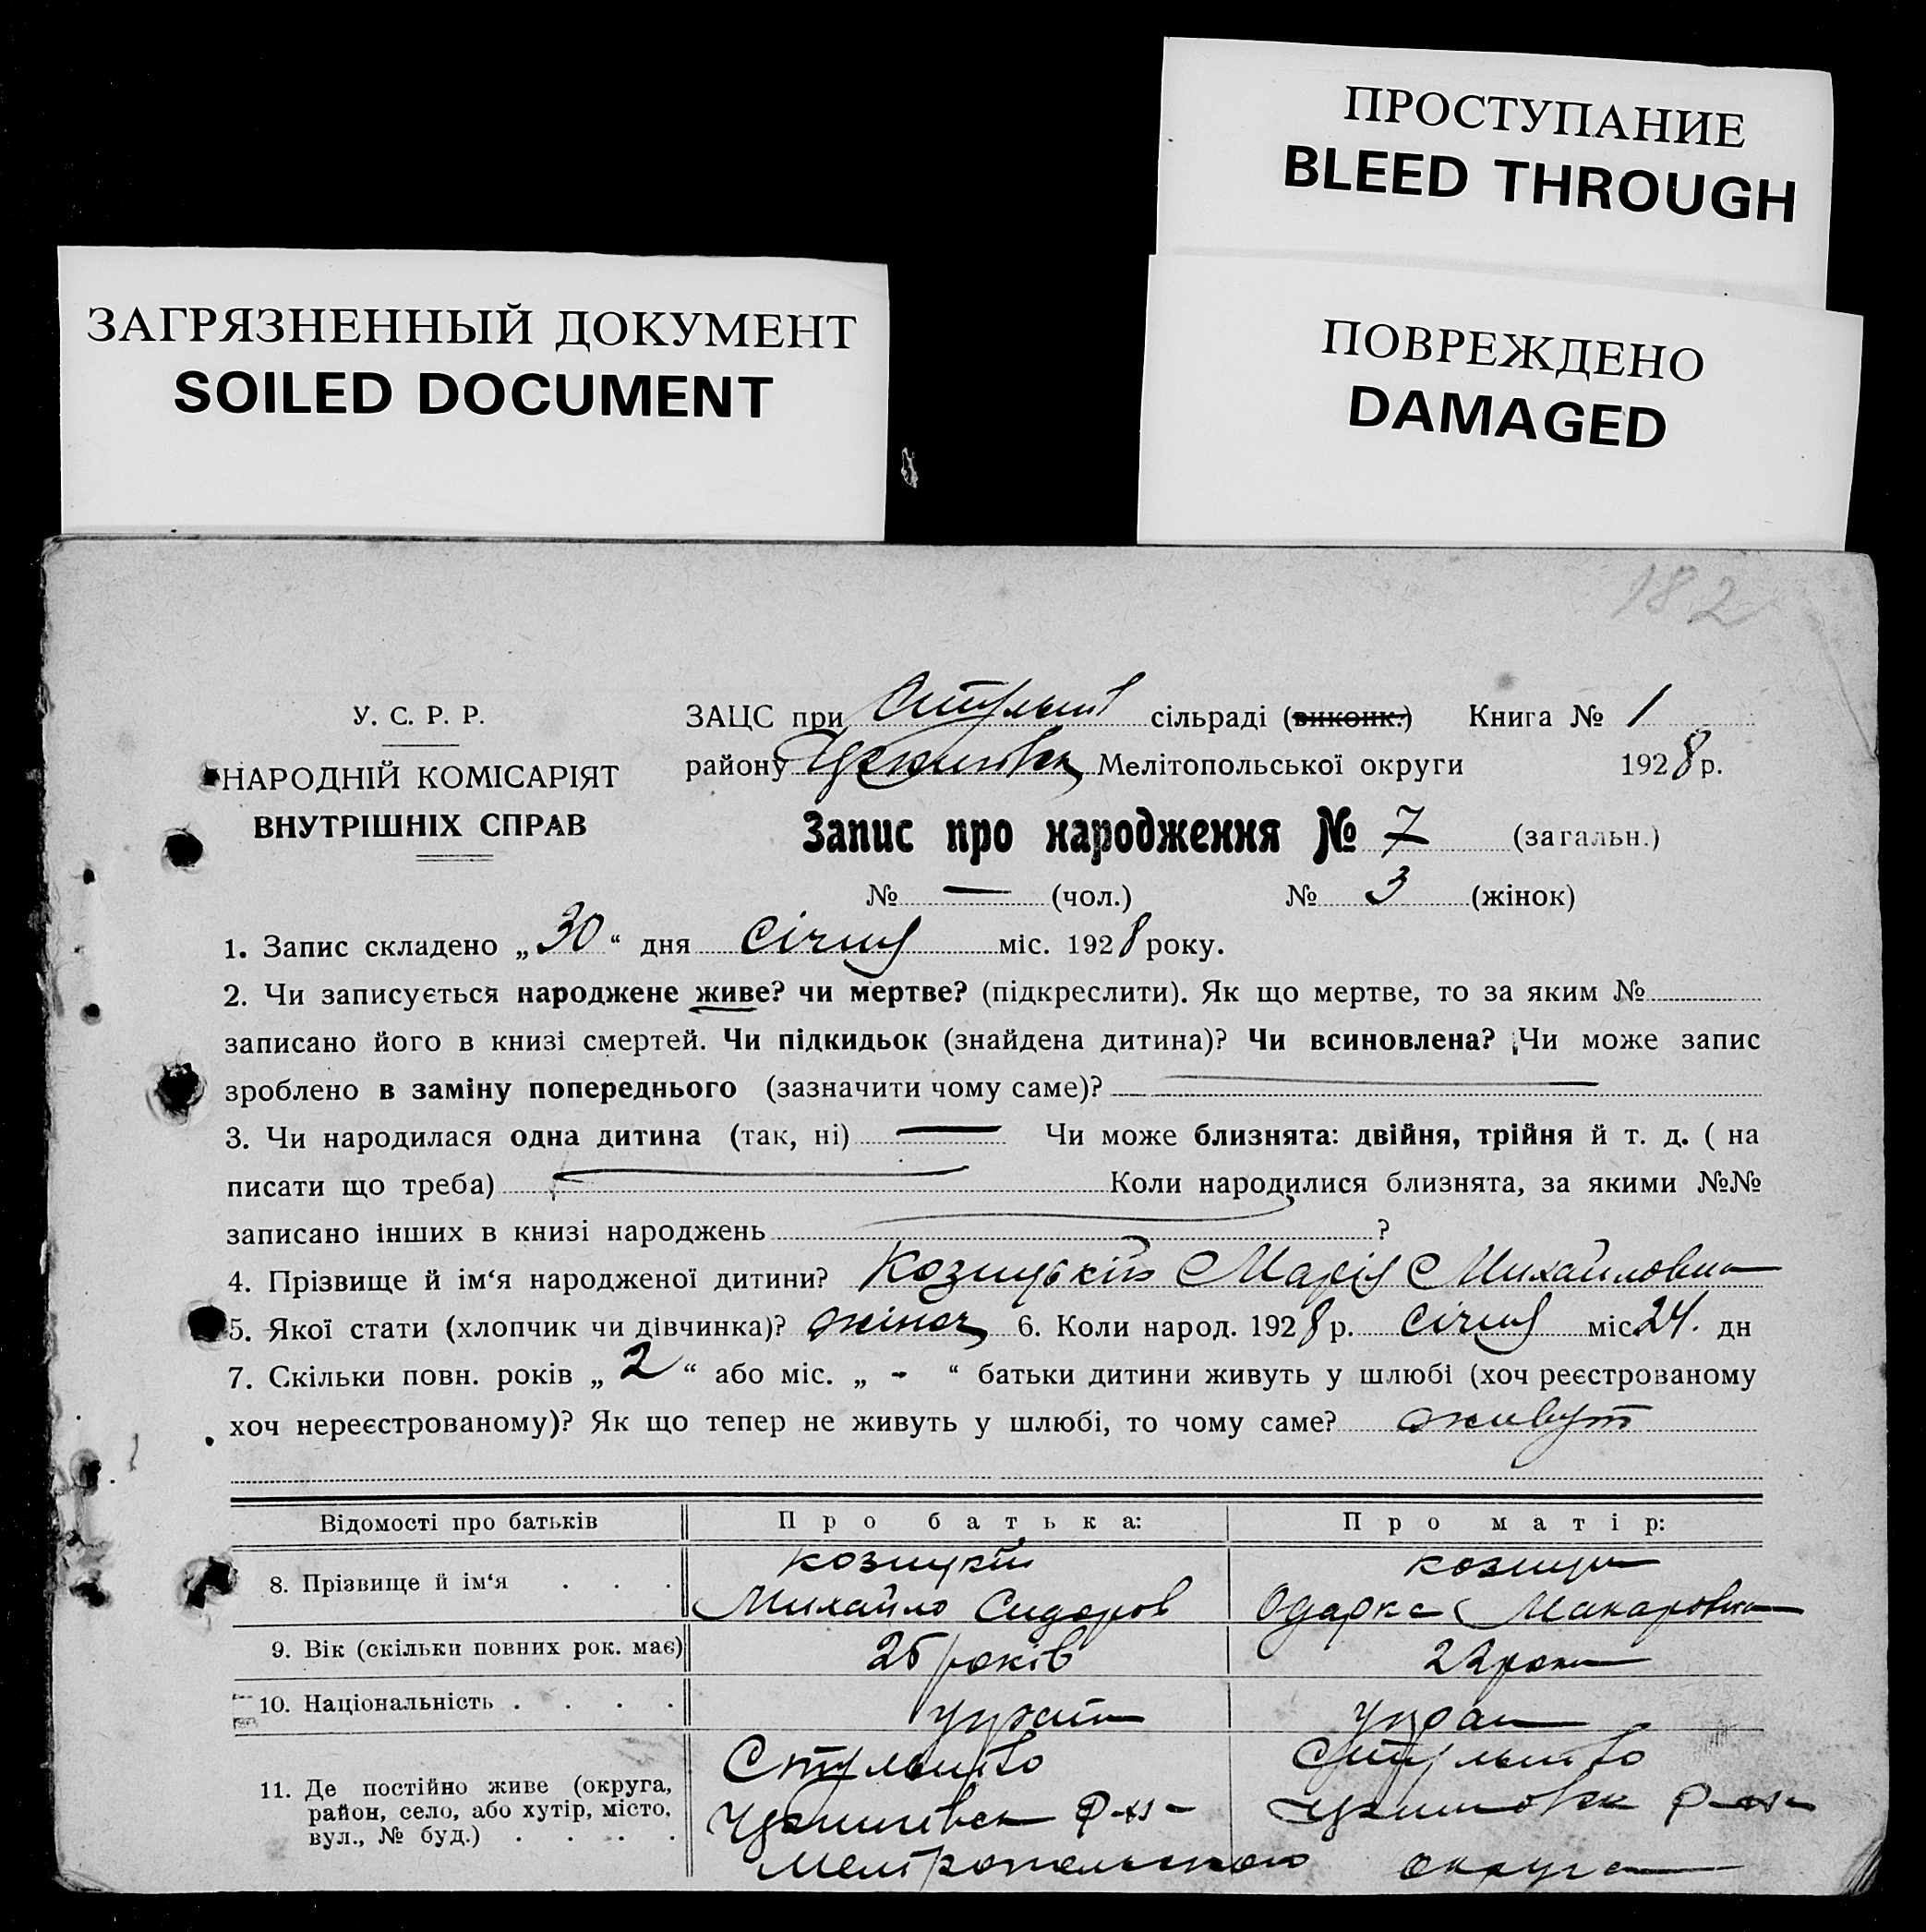 ПРОСТУПАНИЕ
BLEED THROUGH
ЗАГРЯЗНЕННЫЙ ДОКУМЕНТ
SOILED DOCUMENT
ПОВРЕЖДЕНО
DAMAGED
182
У. С. Р. Р.
НАРОДНІЙ КОМІСАРІЯТ
ВНУТРІШНІХ СПРАВ
ЗАЦС при сільраді (виконк.) Книга № 1
району Мелітопольської округи 1928 р.
Запис про народження № 7 (загальн.)
№ — (чол.) № 3 (жінок)
1. Запис складено „30“ дня січня міс. 1928 року.
2. Чи записується народжене живе? чи мертве? (підкреслити). Як що мертве, то за яким №
записано його в книзі смертей. Чи підкидьок (знайдена дитина)? Чи всиновлена? Чи може запис
зроблено в заміну попереднього (зазначити чому саме)? —
3. Чи народилася одна дитина (так, ні) — Чи може близнята: двійня, трійня й т. д. ( на
писати що треба) — Коли народилися близнята, за якими №№
записано інших в книзі народжень — ?
4. Прізвище й ім‘я народженої дитини? Марія Михайловна
5. Якої стати (хлопчик чи дівчинка)? жіноч 6. Коли народ. 1928 р. січня міс 24. дн
7. Скільки повн. років „2“ або міс. „-“ батьки дитини живуть у шлюбі (хоч реєстрованому
хоч нереєстрованому)? Як що тепер не живуть у шлюбі, то чому саме? живут
Відомості про батьків Про батька: Про матір:
8. Прізвище й ім‘я . . . Козицкій
Михайло Сидоров Одарка Макаровна
9. Вік (скільки повних рок. має) 25 років 22 роки
10. Національність . . . . україн укран
11. Де постійно живе (округа,
район, село, або хутір, місто,
вул., № буд.) . . . . р-н р-н
округа